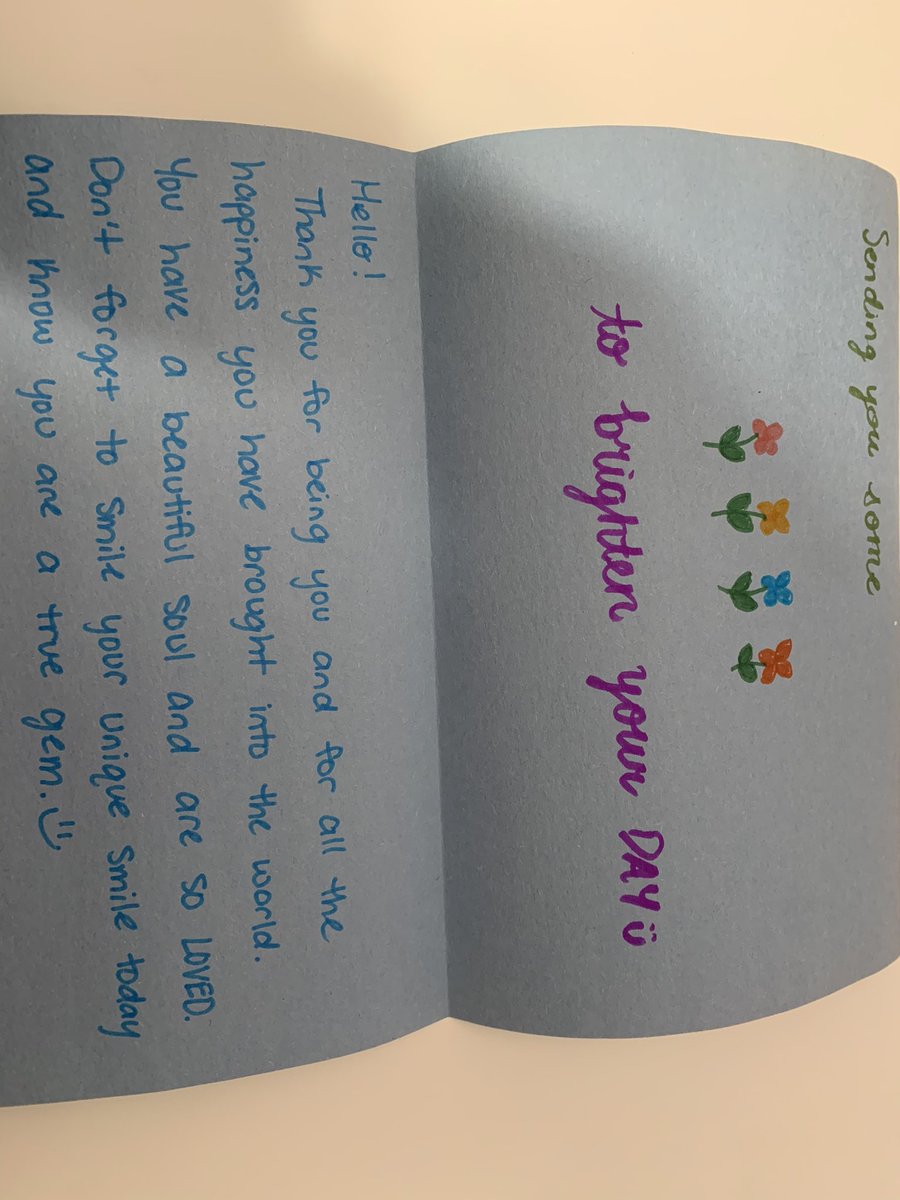 Sending you some
to brighten your DAY
Hello!
Thank you for being you and for all the
happiness you have brought into the world.
You have a beautiful soul and are so LOVED.
Don't forget to smile your unique smile today
and know you are a true gem.